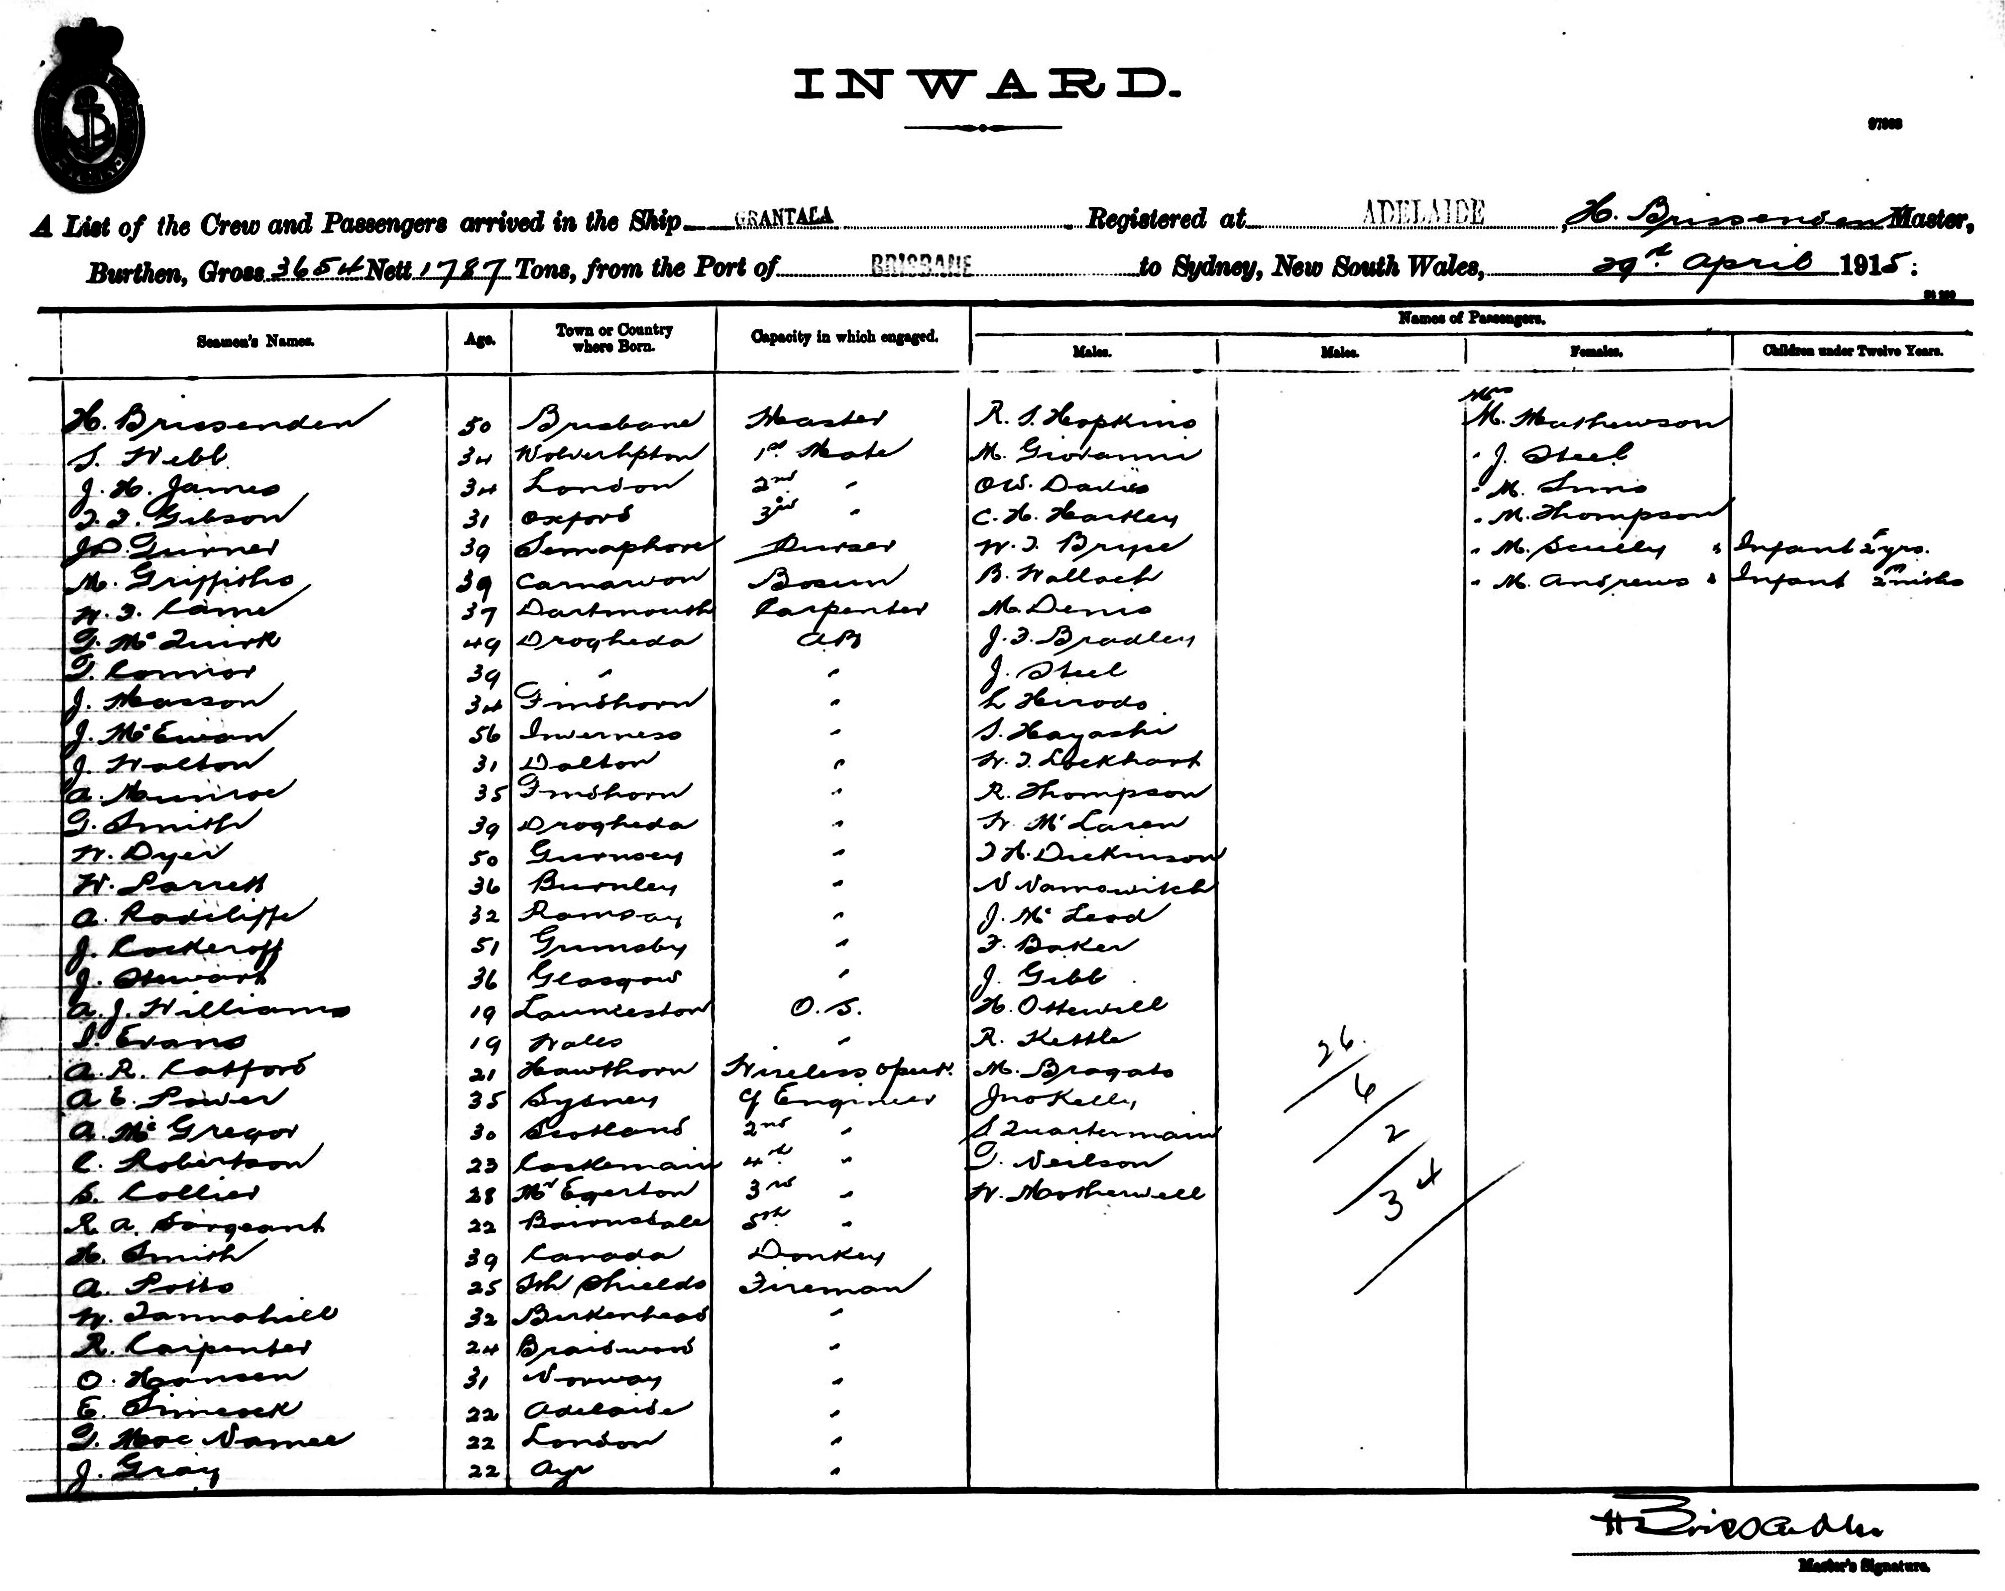 INWARD.
97908
A List of the Crew and Passengers arrived in the Ship GRANTALA Registered at ADELAIDE, H. Brissenden Master,
Burthen, Gross 3654 Nett 1787 Tons, from the Port of BRISBANE to Sydney, New South Wales, 29th April 1915:
Names of Passengers.
Seamen's Names. Age. Town or Country where Born. Capacity in which engaged. Males. Males. Females. Children under Twelve Years.
Mrs
H. Brissenden 50 Brisbane Master R. S. Hopkins M. Mathewson
S. Webb 34 Wolverhpton 1st Mate M. Giovanni " J. Steel
J. H. James 34 London 2nd " O W. Davies " M.
T. F. Gibson 31 Oxford 3rd " C. H. Hartley " M. Thompson
J. D. Turner 39 Semaphore Purser W. J. Bryce " M. Scully & Infant 2 yrs.
M. Griffiths 39 Carnarvon Bosun B. Wallach " M. Andrews & Infant 2 mths
W. J. Came 37 Dartmouth Carpenter M. Denis
T. McQuirk 49 Drogheda AB J. F. Bradley
T. Connor 39 " " J. Steel
J. Masson 34 Findhorn " L Hirodo
J. McEwan 56 Inverness " S. Hayashi
J. Walton 31 Dalton " W. J. Lockhart
A. Munroe 35 Findhorn " R. Thompson
G. Smith 39 Drogheda " W. McLaren
W. Dyer 50 Gurnsey " J H. Dickinson
W. Parrett 36 Burnley " N Namowitch
A. Radcliffe 32 Ramsay " J. McLeod
J. Cockcroff 51 Grimsby " F. Baker
J. Stewart 36 Glasgow " J. Gibb
A. J. Williams 19 Launceston O. S. H. Ottewill
I. Evans 19 Wales " R. Kettle 26
A. R. Catford 21 Hawthorn Wireless Opert. M. Bragato 6
A E. Power 35 Sydney Cf Engineer Jno Kelly
A. McGregor 30 Scotland 2nd " S Quartermain 2
C. Robertson 23 Castlemain 4th " T. Neilson
S. Collier 28 Mt Egerton 3rd " W. Motherwell 34
R. A. Sargeant 22 Bairnsdale 5th "
H. Smith 39 Canada Donkey
A. Potts 25 Sth Shields Fireman
W. Tannahill 32 Birkenhead "
R. Carpenter 24 Braidwood "
O. Hansen 31 Norway "
E. Simcock 22 Adelaide "
G. Mac Namee 22 London "
J. Gray 22 Ayr "
Master's Signature.